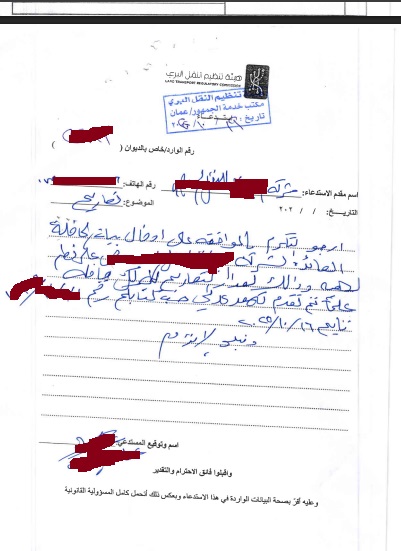 هيئة تنظيم النقل البري
LAND TRANSPORT REGULATORY COMMISSION
تنظيم النقل البري
مكتب خدمة الجمهور/عمان
تاريخ:
استدعاء
رقم الوارد/خاص بالديوان ( )
اسم مقدم الاستدعاء: شركة رقم الهاتف:
التاريخ: / / ٢٠٢ الموضوع: تصاريح
ارجو التكرم بالموافقة على ادخال بيانات الحافلة
العائدة لشركة على نظم
وذلك لإصدار تصاريح لتلك حافلة
علماً تم تقديم حسب كتابكم رقم
تاريخ ٢٠٢٥/١٠/١٦
اسم وتوقيع المستدعي:
واقبلوا فائق الاحترام والتقدير
وعليه أقر بصحة البيانات الواردة في هذا الاستدعاء وبعكس ذلك أتحمل كامل المسؤولية القانونية